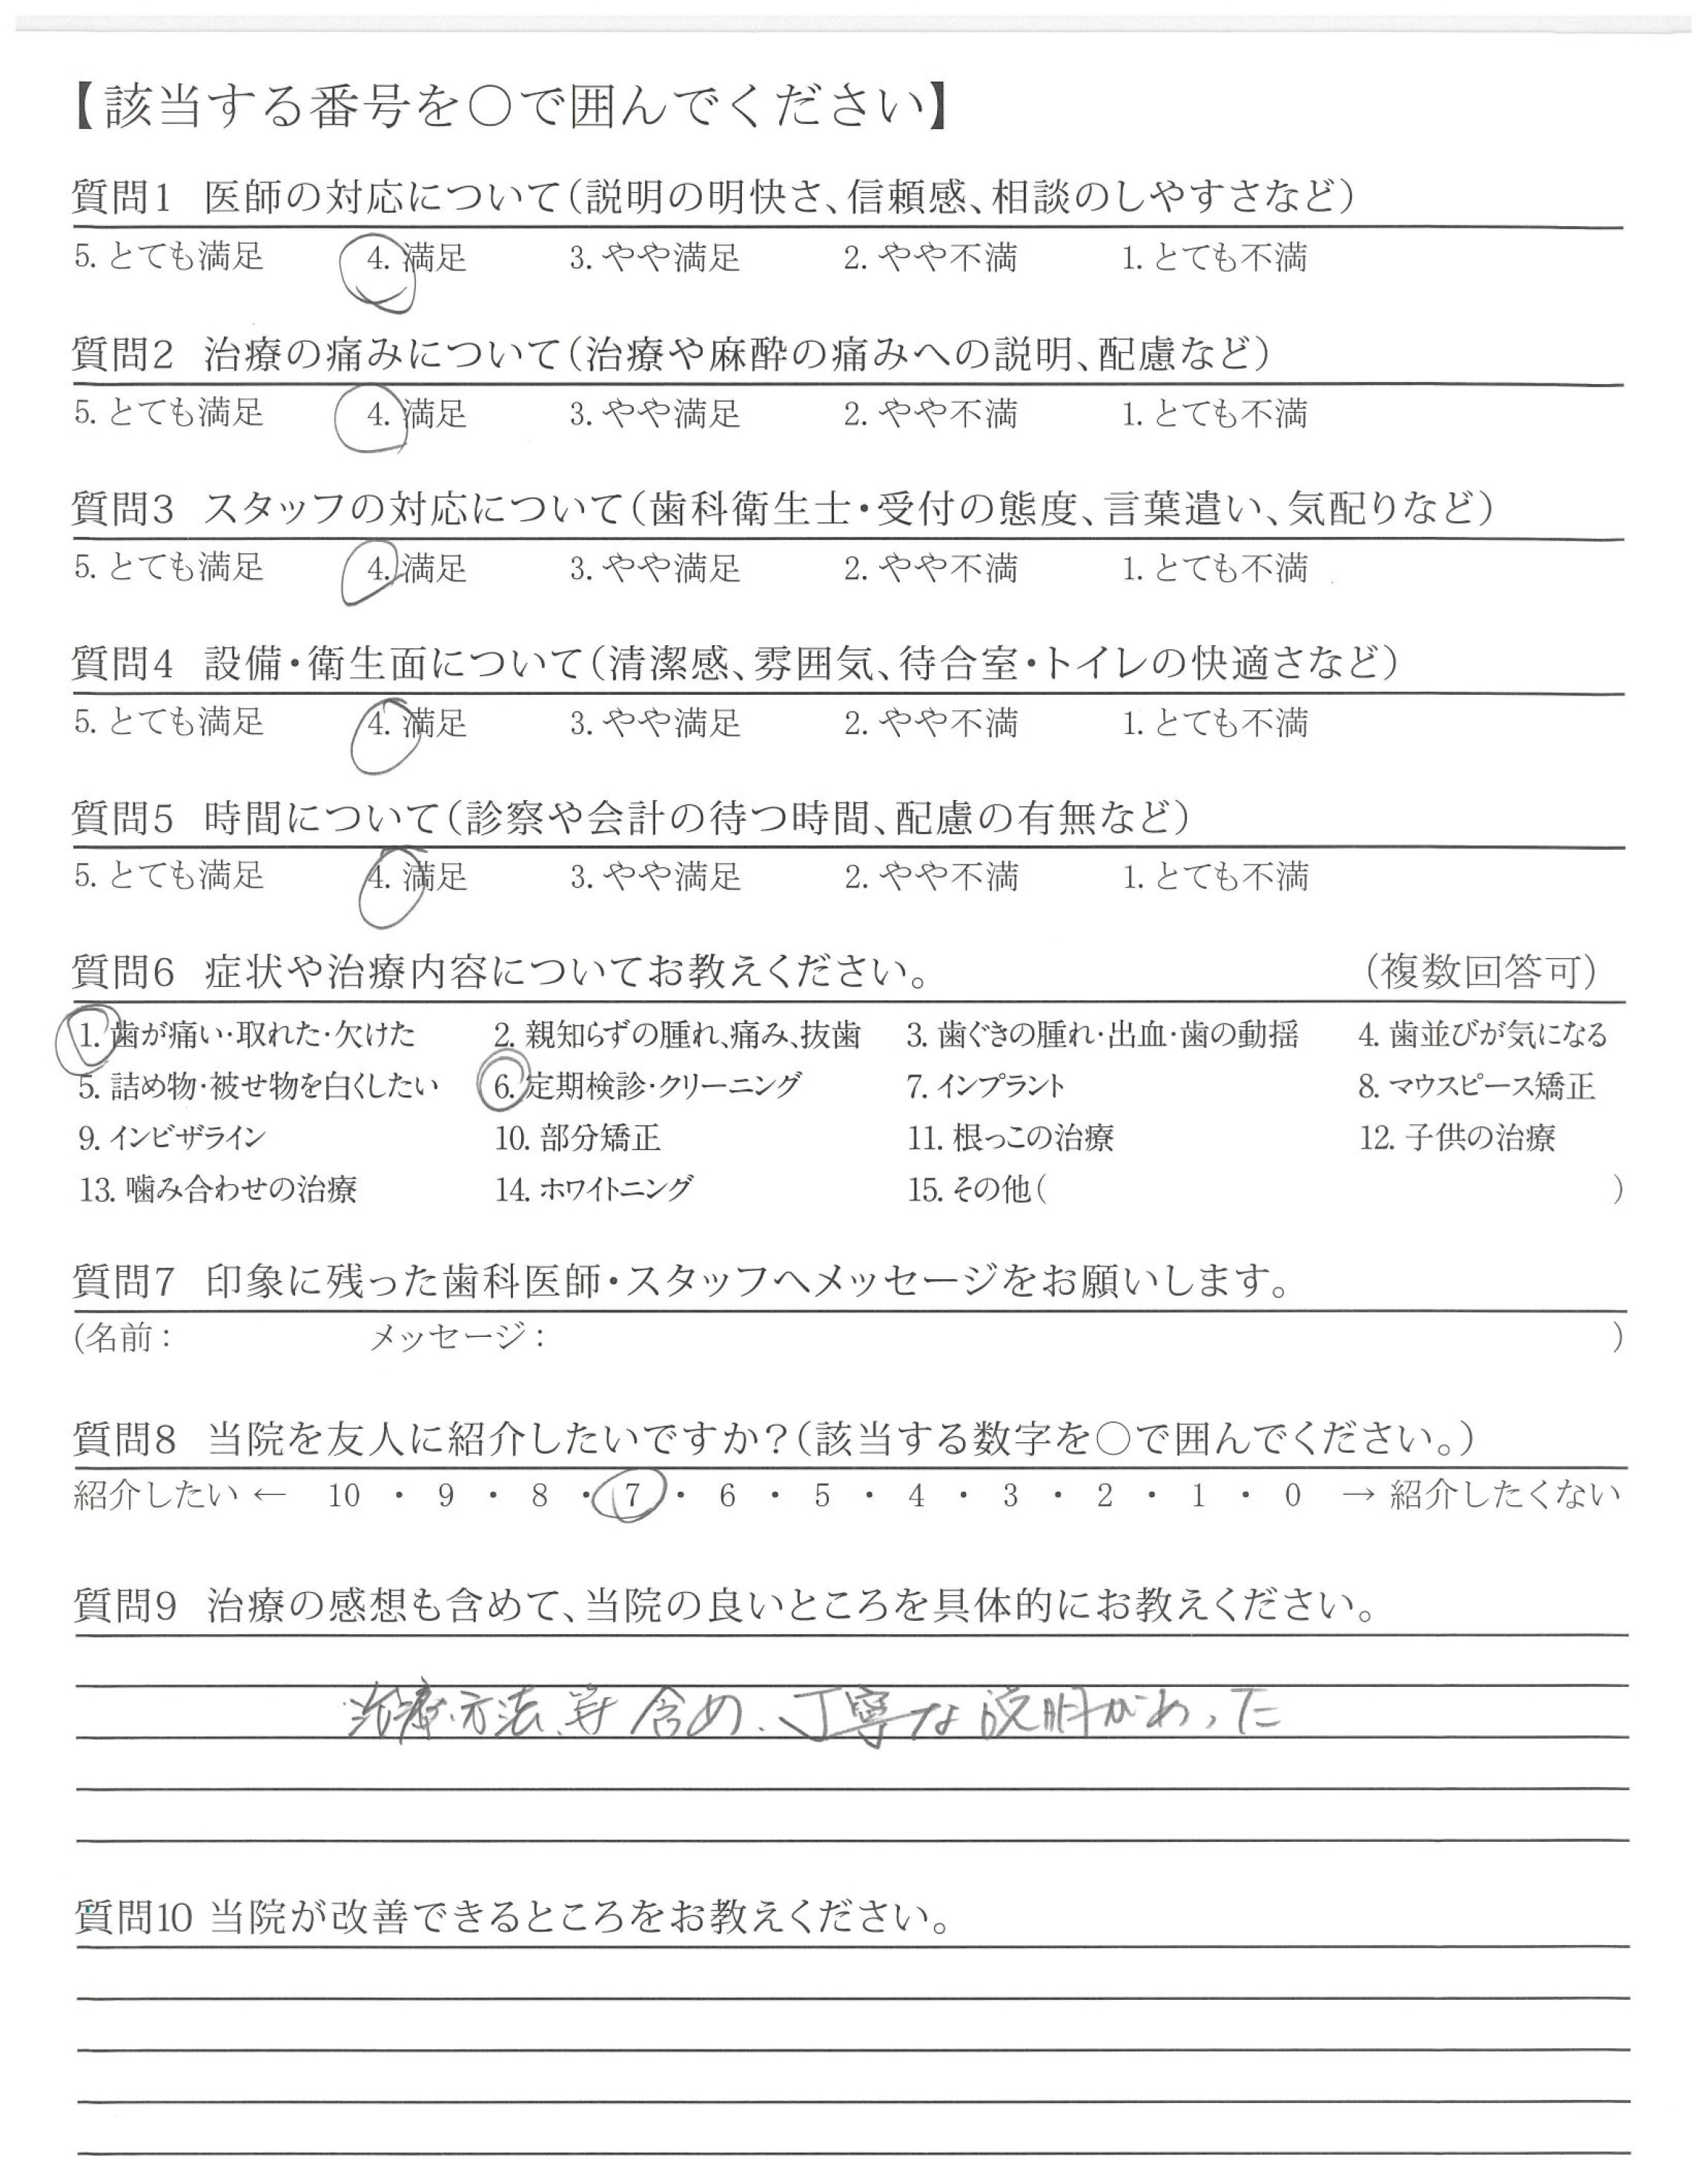 【該当する番号を○で囲んでください】
質問1 医師の対応について(説明の明快さ、信頼感、相談のしやすさなど)
5. とても満足 4. 満足 3. やや満足 2. やや不満 1. とても不満
質問2 治療の痛みについて(治療や麻酔の痛みへの説明、配慮など)
5. とても満足 4. 満足 3. やや満足 2. やや不満 1. とても不満
質問3 スタッフの対応について(歯科衛生士・受付の態度、言葉遣い、気配りなど)
5. とても満足 4. 満足 3. やや満足 2. やや不満 1. とても不満
質問4 設備・衛生面について(清潔感、雰囲気、待合室・トイレの快適さなど)
5. とても満足 4. 満足 3. やや満足 2. やや不満 1. とても不満
質問5 時間について(診察や会計の待つ時間、配慮の有無など)
5. とても満足 4. 満足 3. やや満足 2. やや不満 1. とても不満
質問6 症状や治療内容についてお教えください。 (複数回答可)
1. 歯が痛い・取れた・欠けた 2. 親知らずの腫れ、痛み、抜歯 3. 歯ぐきの腫れ・出血・歯の動揺 4. 歯並びが気になる
5. 詰め物・被せ物を白くしたい 6. 定期検診・クリーニング 7. インプラント 8. マウスピース矯正
9. インビザライン 10. 部分矯正 11. 根っこの治療 12. 子供の治療
13. 噛み合わせの治療 14. ホワイトニング 15. その他( )
質問7 印象に残った歯科医師・スタッフへメッセージをお願いします。
(名前: メッセージ: )
質問8 当院を友人に紹介したいですか?(該当する数字を○で囲んでください。)
紹介したい ← 10 ・ 9 ・ 8 ・ 7 ・ 6 ・ 5 ・ 4 ・ 3 ・ 2 ・ 1 ・ 0 → 紹介したくない
質問9 治療の感想も含めて、当院の良いところを具体的にお教えください。
治療方法等含め、丁寧な説明があった
質問10 当院が改善できるところをお教えください。